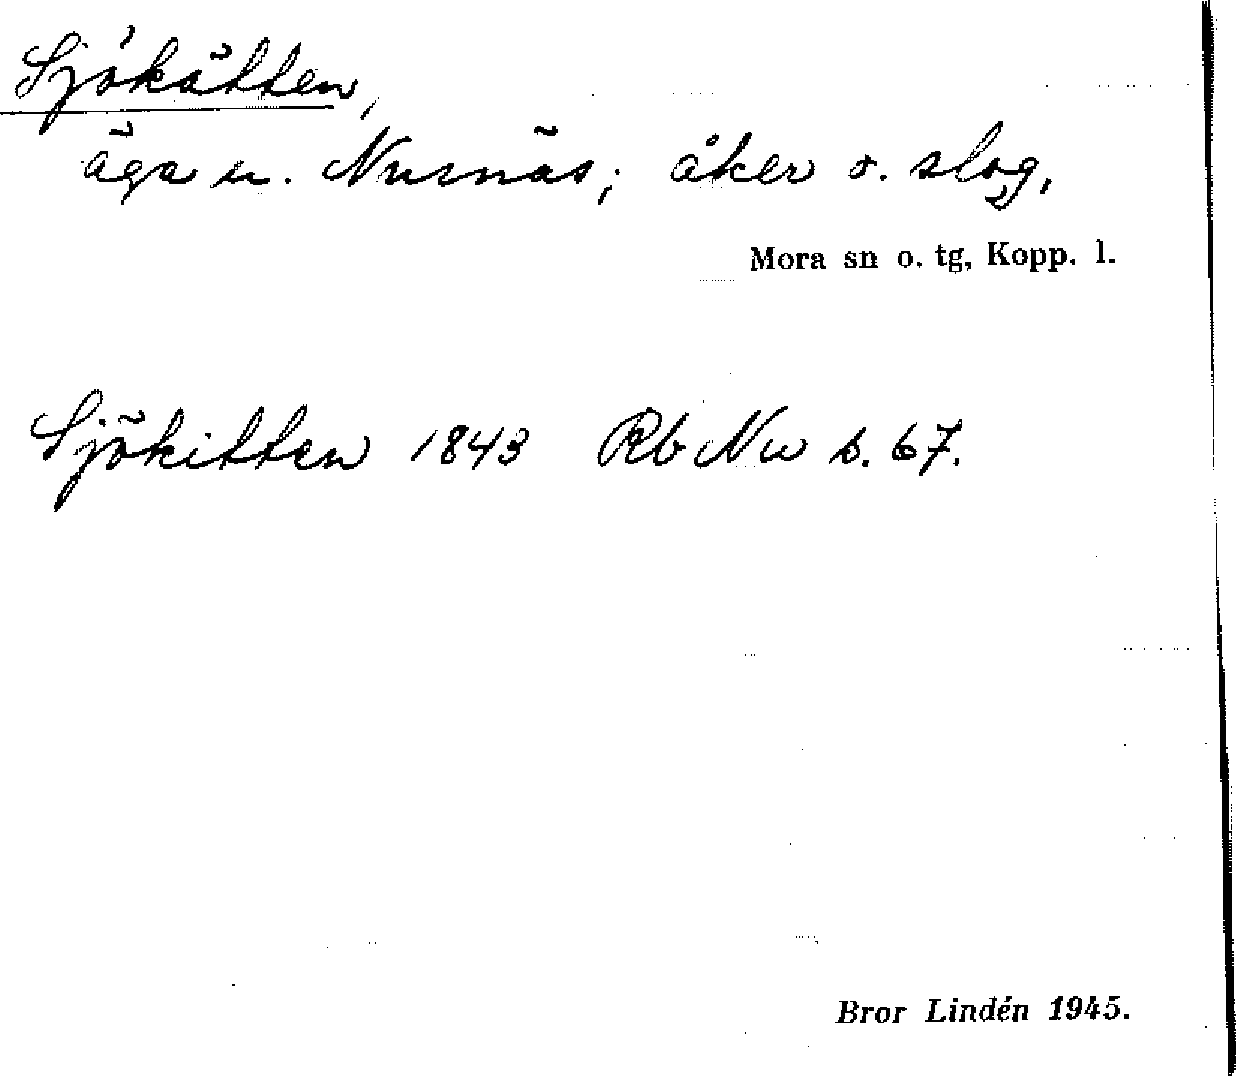 Sjökätten,
äga u. Nusnäs; åker o. slog,
Mora sn o. tg, Kopp. l.
Sjökitten 1843 Rb Nu s. 67.
Bror Lindén 1945.